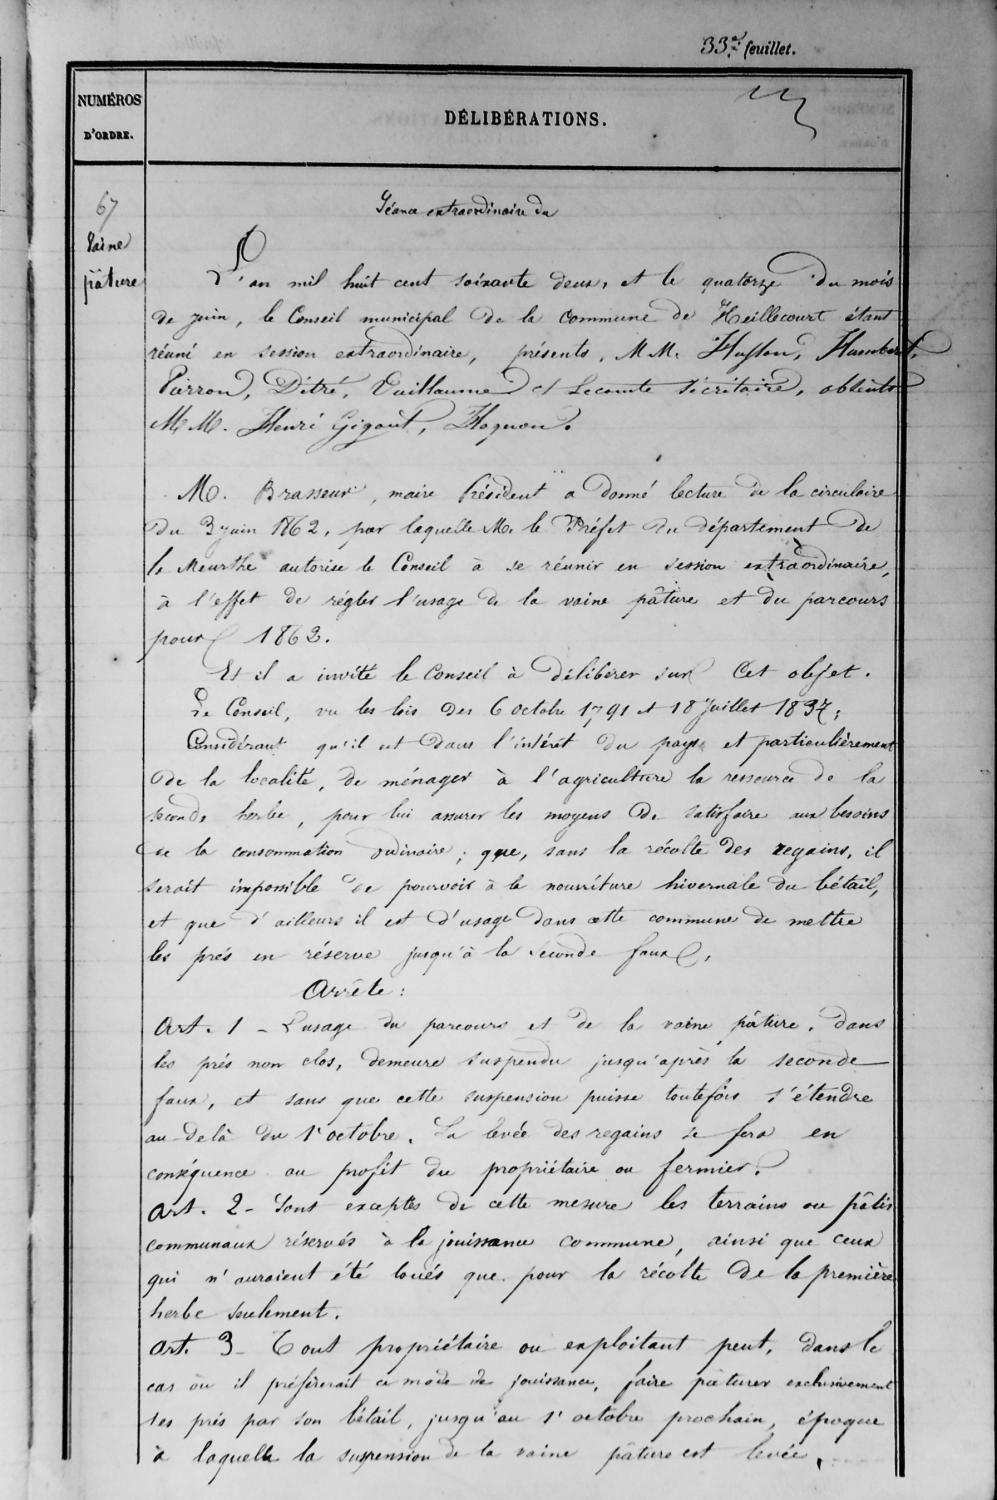 33e feuillet.
NUMÉROS
D'ORDRE.
DÉLIBÉRATIONS.
67
Vaine
pâture
Séance extraordinaire du
L'an mil huit cent soixante deux, et le quatorze du mois
de juin, le Conseil municipal de la Commune de Heillecourt étant
réuni en session extraordinaire, présents, MM. Husson, Humbert,
Pierron, Détré, Vuillaume et Lecomte Sécrétaire, absents
MM. Henri Gigout, Hoquon.
M. Brasseur, maire Président a donné lecture de la circulaire
du 3 juin 1862, par laquelle M. le Préfet du département de
la Meurthe autorise le Conseil à se réunir en session extraordinaire,
à l'effet de régler l'usage de la vaine pâture et du parcours
pour 1862.
Et il a invité le Conseil à délibérer sur cet objet.
Le Conseil, vu les lois des 6 octobre 1791 et 18 Juillet 1837;
Considérant qu'il est dans l'intérêt du pays et particulièrement
de la localité, de ménager à l'agriculture la ressource de la
seconde herbe, pour lui assurer les moyens de satisfaire aux besoins
de la consommation ordinaire; que, sans la récolte des regains, il
serait impossible de pourvoir à la nourriture hivernale du bétail,
et que d'ailleurs il est d'usage dans cette commune de mettre
les prés en réserve jusqu'à la seconde faux,
Arrête:
Art. 1 - L'usage du parcours et de la vaine pâture, dans
les prés non clos, demeure suspendu jusqu'après la seconde
faux, et sans que cette suspension puisse toutefois s'étendre
au-delà du 1r octobre. La levée des regains se fera en
conséquence au profit du propriétaire ou fermier.
Art. 2 - Sont exceptés de cette mesure les terrains ou pâtis
communaux réservés à la jouissance commune, ainsi que ceux
qui n'auraient été loués que pour la récolte de la première
herbe seulement.
Art. 3 - Tout propriétaire ou exploitant peut, dans le
cas où il préfèrerait ce mode de jouissance, faire pâturer exclusivement
ses prés par son bétail, jusqu'au 1r octobre prochain, époque
à laquelle la suspension de la vaine pâture est levée.